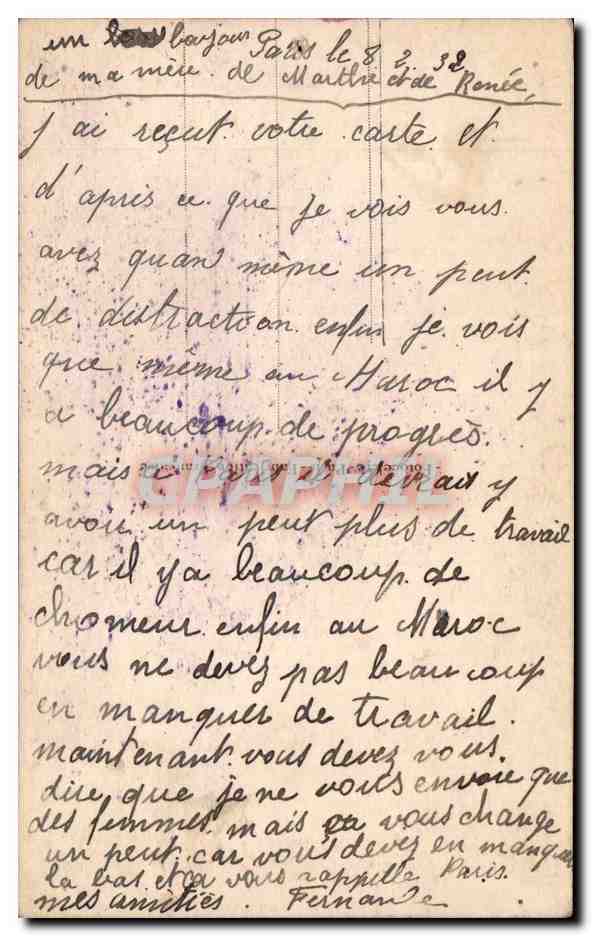 un bonjour Paris le 8 2. 32
de ma mère. de Marthe et de Renée,
J ai reçut votre carte et
d'après ce que je vois vous.
avez quan même un peut
de distraction enfin je vois
que même au Maroc il y
a beaucoup de progrès.
mais a Paris il devrait y
avoir un peut plus de travail
car il y a beaucoup de
chomeur enfin au Maroc
vous ne devez pas beaucoup
en manquer de travail.
maintenant vous devez vous.
dire que je ne vous envoie que
des femmes mais ça vous change
un peut. car vous devez en manquer
la bas et ça vous rappelle Paris.
mes amitiés. Fernande
CPAPHIL